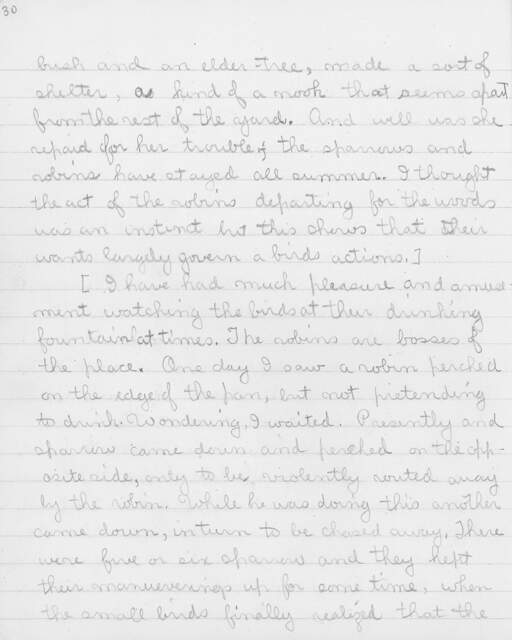 30
bush and an elder-tree, made a sort of
shelter, a kind of a nook that seems apart
from the rest of the yard. And well was she
repaid for her trouble, the sparrows and
robins have stayed all summer. I thought
the act of the robins departing for the woods
was an instinct but this shows that their
wants largely govern a birds actions.]
[ I have had much pleasure and amuse-
ment watching the birds at their drinking
fountain at times. The robins are bosses of
the place. One day I saw a robin perched
on the edge of the pan, but not pretending
to drink. Wondering, I waited. Presently and
sparrow came down and perched on the opp-
osite side, only to be violently routed away
by the robin. While he was doing this another
came down, in turn to be chased away. There
were five or six sparrow and they kept
their manueverings up for some time, when
the small birds finally realized that the